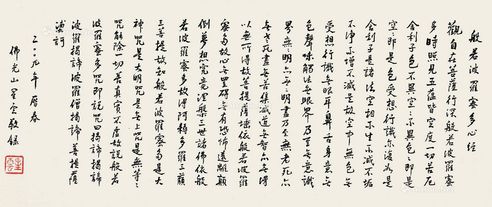 般若波羅蜜多心經
觀自在菩薩行深般若波羅蜜
多時照見五蘊皆空度一切苦厄
舍利子色不異空空不異色色即是
空空即是色受想行識亦復如是
舍利子是諸法空相不生不滅不垢
不淨不增不減是故空中無色無
受想行識無眼耳鼻舌身意無
色聲味觸法無眼界乃至無意識
界無無明亦無無明盡乃至無老死亦
無老死盡無苦集滅道無智亦無得
以無所得故菩提薩埵依般若波羅
蜜多故心無罣礙無有恐怖遠離顛
倒夢想究竟涅槃三世諸佛依般
若波羅蜜多故得阿耨多羅三藐
三菩提故知般若波羅蜜多是大
神咒是大明咒是無上咒是無等等
咒能除一切苦真實不虛故說般若
波羅蜜多咒即說咒曰揭諦揭諦
波羅揭諦波羅僧揭諦菩提薩
婆訶
二〇〇九年 春
佛光山星雲敬錄